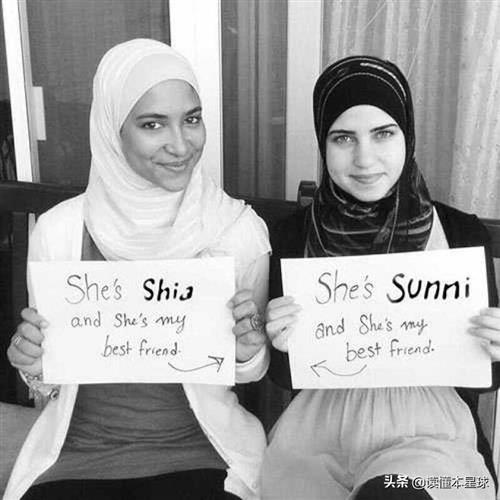 She's Shia
and She's my
best friend.
She's Sunni
and She's my
best friend.
头条 @读懂本星球